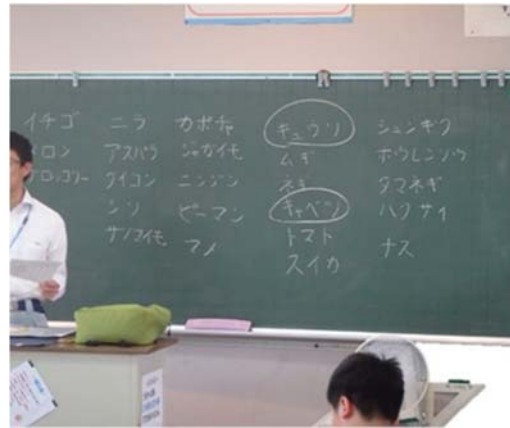 イチゴ
メロン
ブロッコリー
ニラ
アスパラ
ダイコン
シソ
サツマイモ
カボチャ
ジャガイモ
ニンジン
ピーマン
マメ
キュウリ
ムギ
ネギ
キャベツ
トマト
スイカ
シュンギク
ホウレンソウ
タマネギ
ハクサイ
ナス